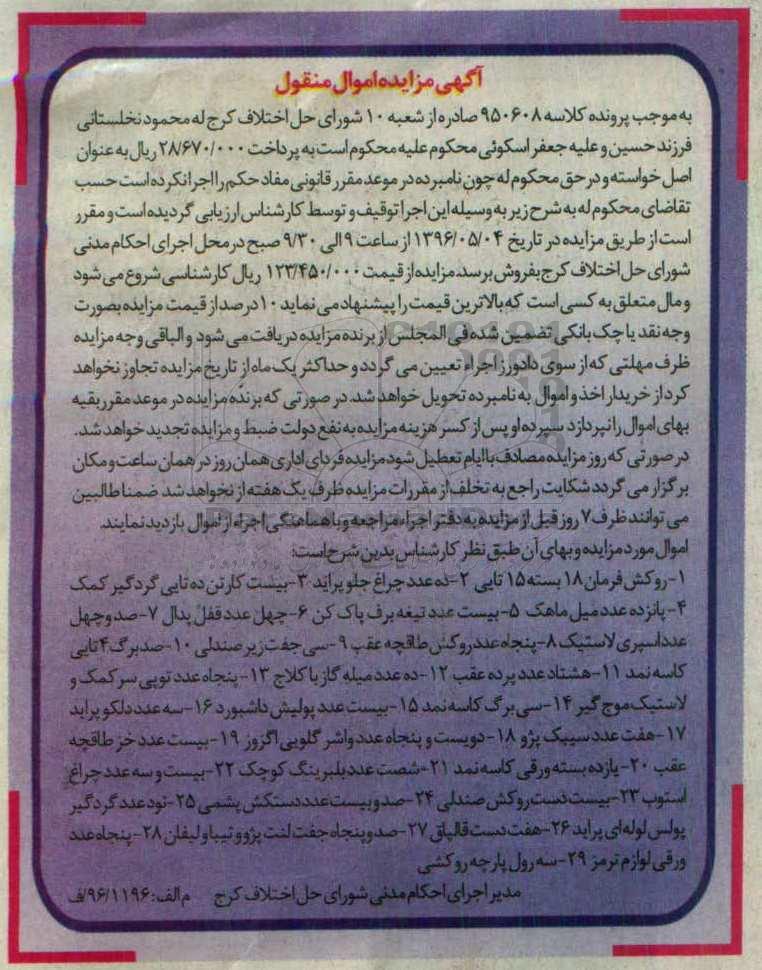 آگهی مزایده اموال منقول
به موجب پرونده کلاسه ۹۵۰۶۰۸ صادره از شعبه ۱۰ شورای حل اختلاف کرج له محمود نخلستانی
فرزند حسین و علیه جعفر اسکوئی محکوم علیه محکوم است به پرداخت ۲۸/۶۷۰/۰۰۰ ریال به عنوان
اصل خواسته و در حق محکوم له چون نامبرده در موعد مقرر قانونی مفاد حکم را اجرا نکرده است حسب
تقاضای محکوم له به شرح زیر به وسیله این اجرا توقیف و توسط کارشناس ارزیابی گردیده است و مقرر
است از طریق مزایده در تاریخ ۱۳۹۶/۰۵/۰۴ از ساعت ۹ الی ۹/۳۰ صبح در محل اجرای احکام مدنی
شورای حل اختلاف کرج بفروش برسد. مزایده از قیمت ۱۲۳/۴۵۰/۰۰۰ ریال کارشناسی شروع می شود
و مال متعلق به کسی است که بالاترین قیمت را پیشنهاد می نماید ۱۰ درصد از قیمت مزایده بصورت
وجه نقد یا چک بانکی تضمین شده فی المجلس از برنده مزایده دریافت می شود و الباقی وجه مزایده
ظرف مهلتی که از سوی دادورز اجراء تعیین می گردد و حداکثر یک ماه از تاریخ مزایده تجاوز نخواهد
کرد از خریدار اخذ و اموال به نامبرده تحویل خواهد شد. در صورتی که برنده مزایده در موعد مقرر بقیه
بهای اموال را نپردازد سپرده او پس از کسر هزینه مزایده به نفع دولت ضبط و مزایده تجدید خواهد شد.
در صورتی که روز مزایده مصادف با ایام تعطیل شود مزایده فردای اداری همان روز در همان ساعت و مکان
برگزار می گردد شکایت راجع به تخلف از مقررات مزایده ظرف یک هفته از نخواهد شد ضمنا طالبین
می توانند ظرف ۷ روز قبل از مزایده به دفتر اجراء مراجعه و با هماهنگی اجراء از اموال بازدید نمایند.
اموال مورد مزایده و بهای آن طبق نظر کارشناس بدین شرح است:
۱-روکش فرمان ۱۸ بسته ۱۵ تایی ۲-ده عدد چراغ جلو پراید ۳-بیست کارتن ده تایی گردگیر کمک
۴-پانزده عدد میل ماهک ۵-بیست عدد تیغه برف پاک کن ۶-چهل عدد قفل پدال ۷-صد و چهل
عدد اسپری لاستیک ۸-پنجاه عدد روکش طاقچه عقب ۹-سی جفت زیر صندلی ۱۰-صد برگ ۴ تایی
کاسه نمد ۱۱-هشتاد عدد پرده عقب ۱۲-ده عدد میله گاز با کلاج ۱۳-پنجاه عدد توپی سر کمک و
لاستیک موج گیر ۱۴-سی برگ کاسه نمد ۱۵-بیست عدد پولیش داشبورد ۱۶-سه عدد دلکو پراید
۱۷-هفت عدد سیبک پژو ۱۸-دویست و پنجاه عدد واشر گلویی اگزوز ۱۹-بیست عدد خز طاقچه
عقب ۲۰-یازده بسته ورقی کاسه نمد ۲۱-شصت عدد بلبرینگ کوچک ۲۲-بیست و سه عدد چراغ
استوپ ۲۳-بیست دست روکش صندلی ۲۴-صد و بیست عدد دستکش پشمی ۲۵-نود عدد گردگیر
پولس لوله ای پراید ۲۶-هفت دست قالپاق ۲۷-صد و پنجاه جفت لنت پژو و تیبا و لیفان ۲۸-پنجاه عدد
ورقی لوازم ترمز ۲۹-سه رول پارچه روکشی
مدیر اجرای احکام مدنی شورای حل اختلاف کرج م الف: ۹۶/۱۱۹۶/ف